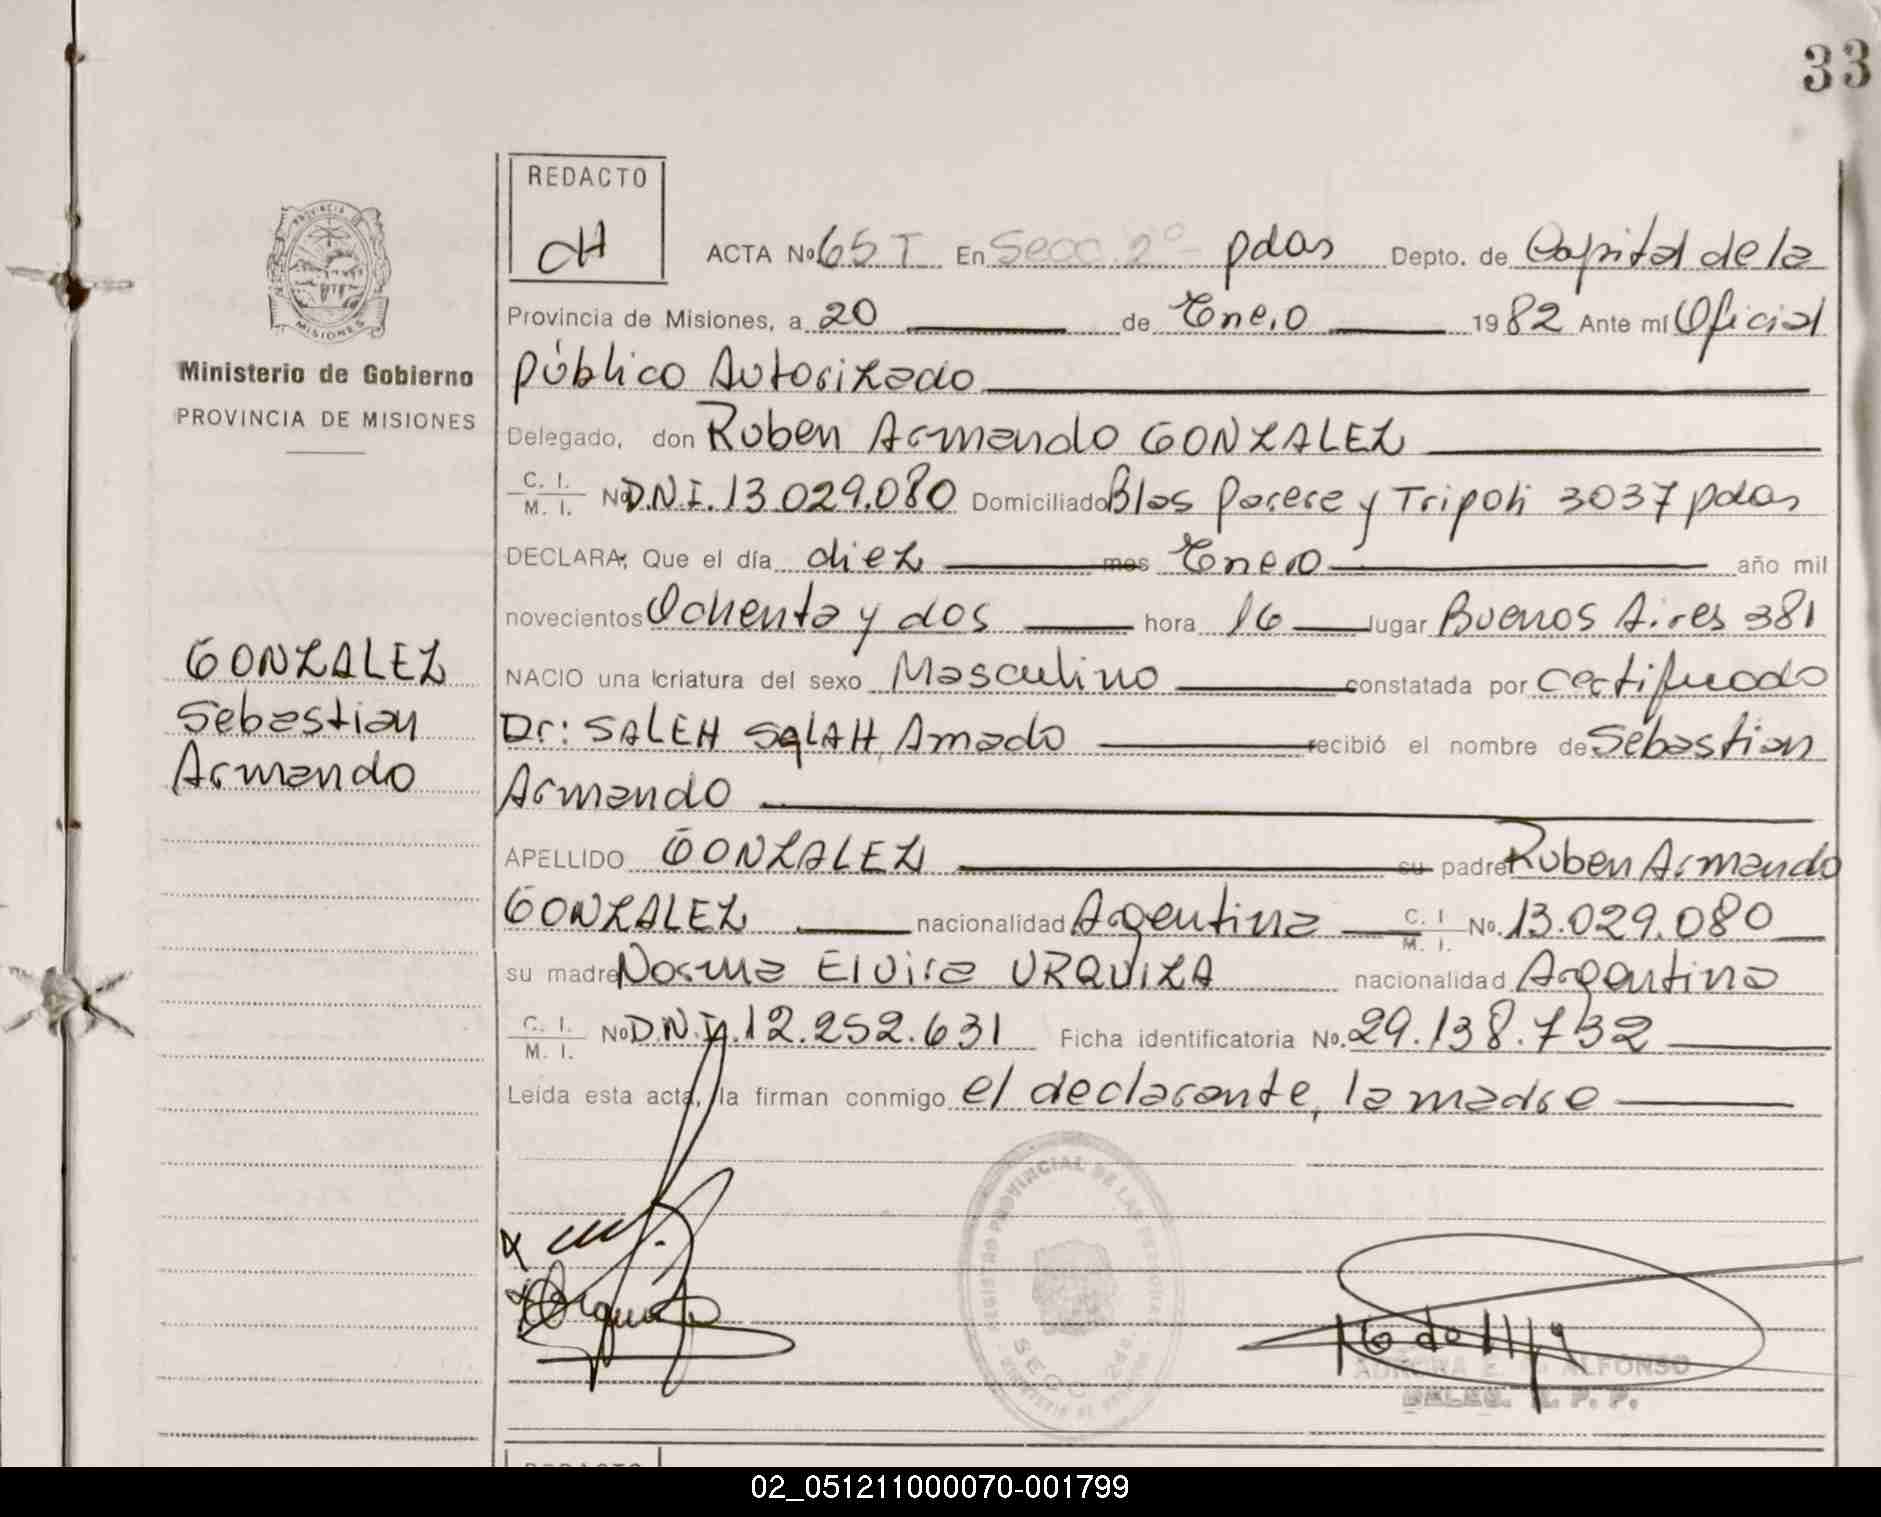 33
REDACTO
CH
ACTA Nº 65 T En Secc. 2º - pdas Depto. de Capital de la
Provincia de Misiones, a 20 de Enero 1982 Ante mí Oficial
Público Autorizado
Delegado, don Ruben Armando GONZALEZ
C. I. / M. I. Nº D.N.I. 13.029.080 Domiciliado Blas Parere y Tripoli 3037 pdas
DECLARA; Que el día diez mes Enero año mil
novecientos Ochenta y dos hora 16 lugar Buenos Aires 381
NACIO una criatura del sexo Masculino constatada por certificado
Dr: SALEH SALAH, Amado recibió el nombre de Sebastian
Armando
APELLIDO GONZALEZ su padre Ruben Armando
GONZALEZ nacionalidad Argentina C. I / M. I. Nº. 13.029.080
su madre Norma Elvira URQUIZA nacionalidad Argentina
C. I. / M. I. Nº D.N.I. 12.252.631 Ficha identificatoria Nº. 29.138.732
Leída esta acta, la firman conmigo el declarante, la madre
PROVINCIA DE
MISIONES
Ministerio de Gobierno
PROVINCIA DE MISIONES
GONZALEZ
Sebastian
Armando
REGISTRO PROVINCIAL DE LAS PERSONAS
SECC. 2da.
AURORA E. ALFONSO
DELEG. R. P. P.
REDACTO
02_051211000070-001799